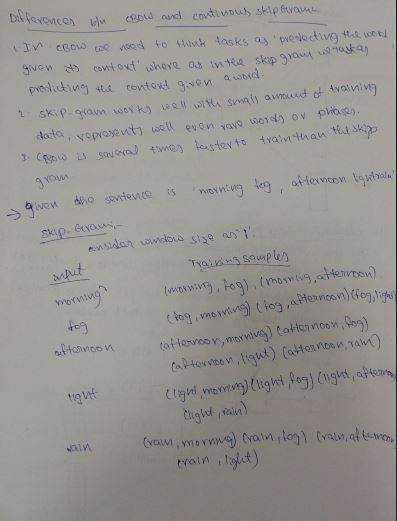 Differences b/n CBOW and continous skip Gram
1. In CBOW we need to think tasks as 'predecting the word
given its context' where as in the skip gram we task as
predicting the context given a word.
2. skip-gram works well with small amount of training
data, represents well even rare words or phases.
3. CBOW is several times faster to train than the skip
gram
→ given the sentence is 'morning fog, afternoon light rain'
skip-Gram:-
consider window size as '1'.
input Training samples
morning (morning, fog), (morning, afternoon)
fog (fog, morning) (fog, afternoon) (fog, light)
afternoon (afternoon, morning) (afternoon, fog)
(afternoon, light) (afternoon, rain)
light (light, morning) (light, fog) (light, afternoon
(light, rain)
rain (rain, morning) (rain, fog) (rain, afternoon
(rain, light)